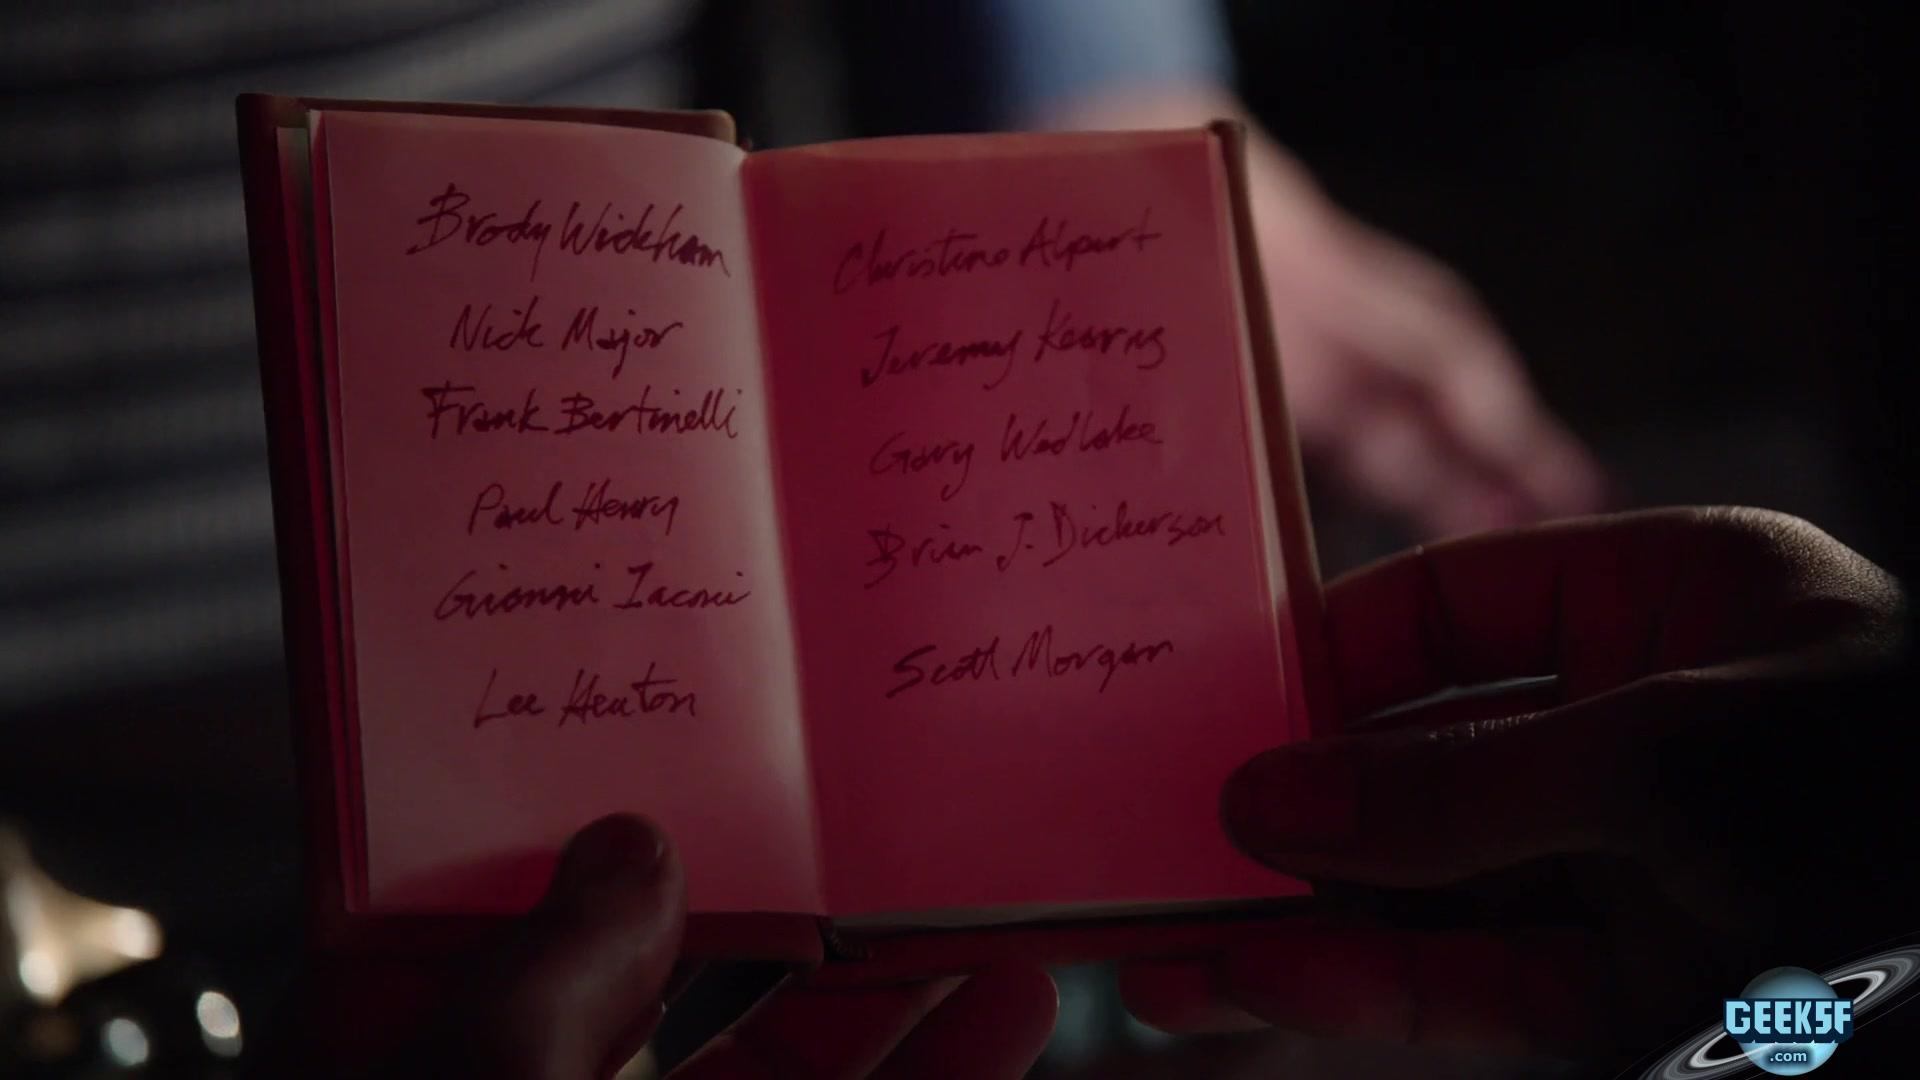 Brody Wickham
Nick Major
Frank Bertinelli
Paul Henry
Gionni Iaconi
Lee Heaton
Christine Alpert
Jeremy Kearns
Gary Wedlake
Brian J. Dickerson
Scott Morgan
GEEKSF
.com